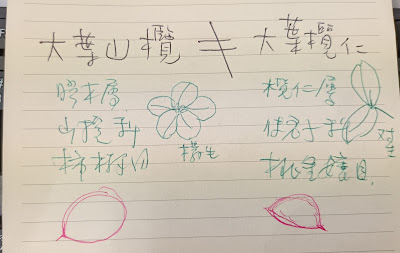 大葉山欖 ≠ 大葉欖仁
膠木屬 欖仁屬
山欖科 使君子科
对生
桃金孃目